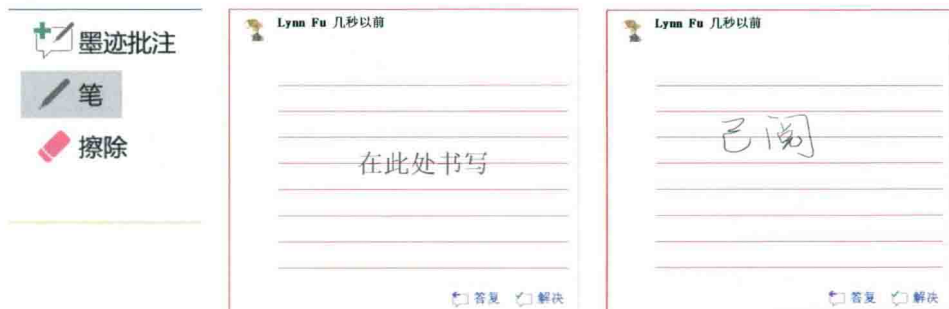 墨迹批注
笔
擦除
Lynn Fu 几秒以前
在此处书写
答复 解决
Lynn Fu 几秒以前
已阅
答复 解决